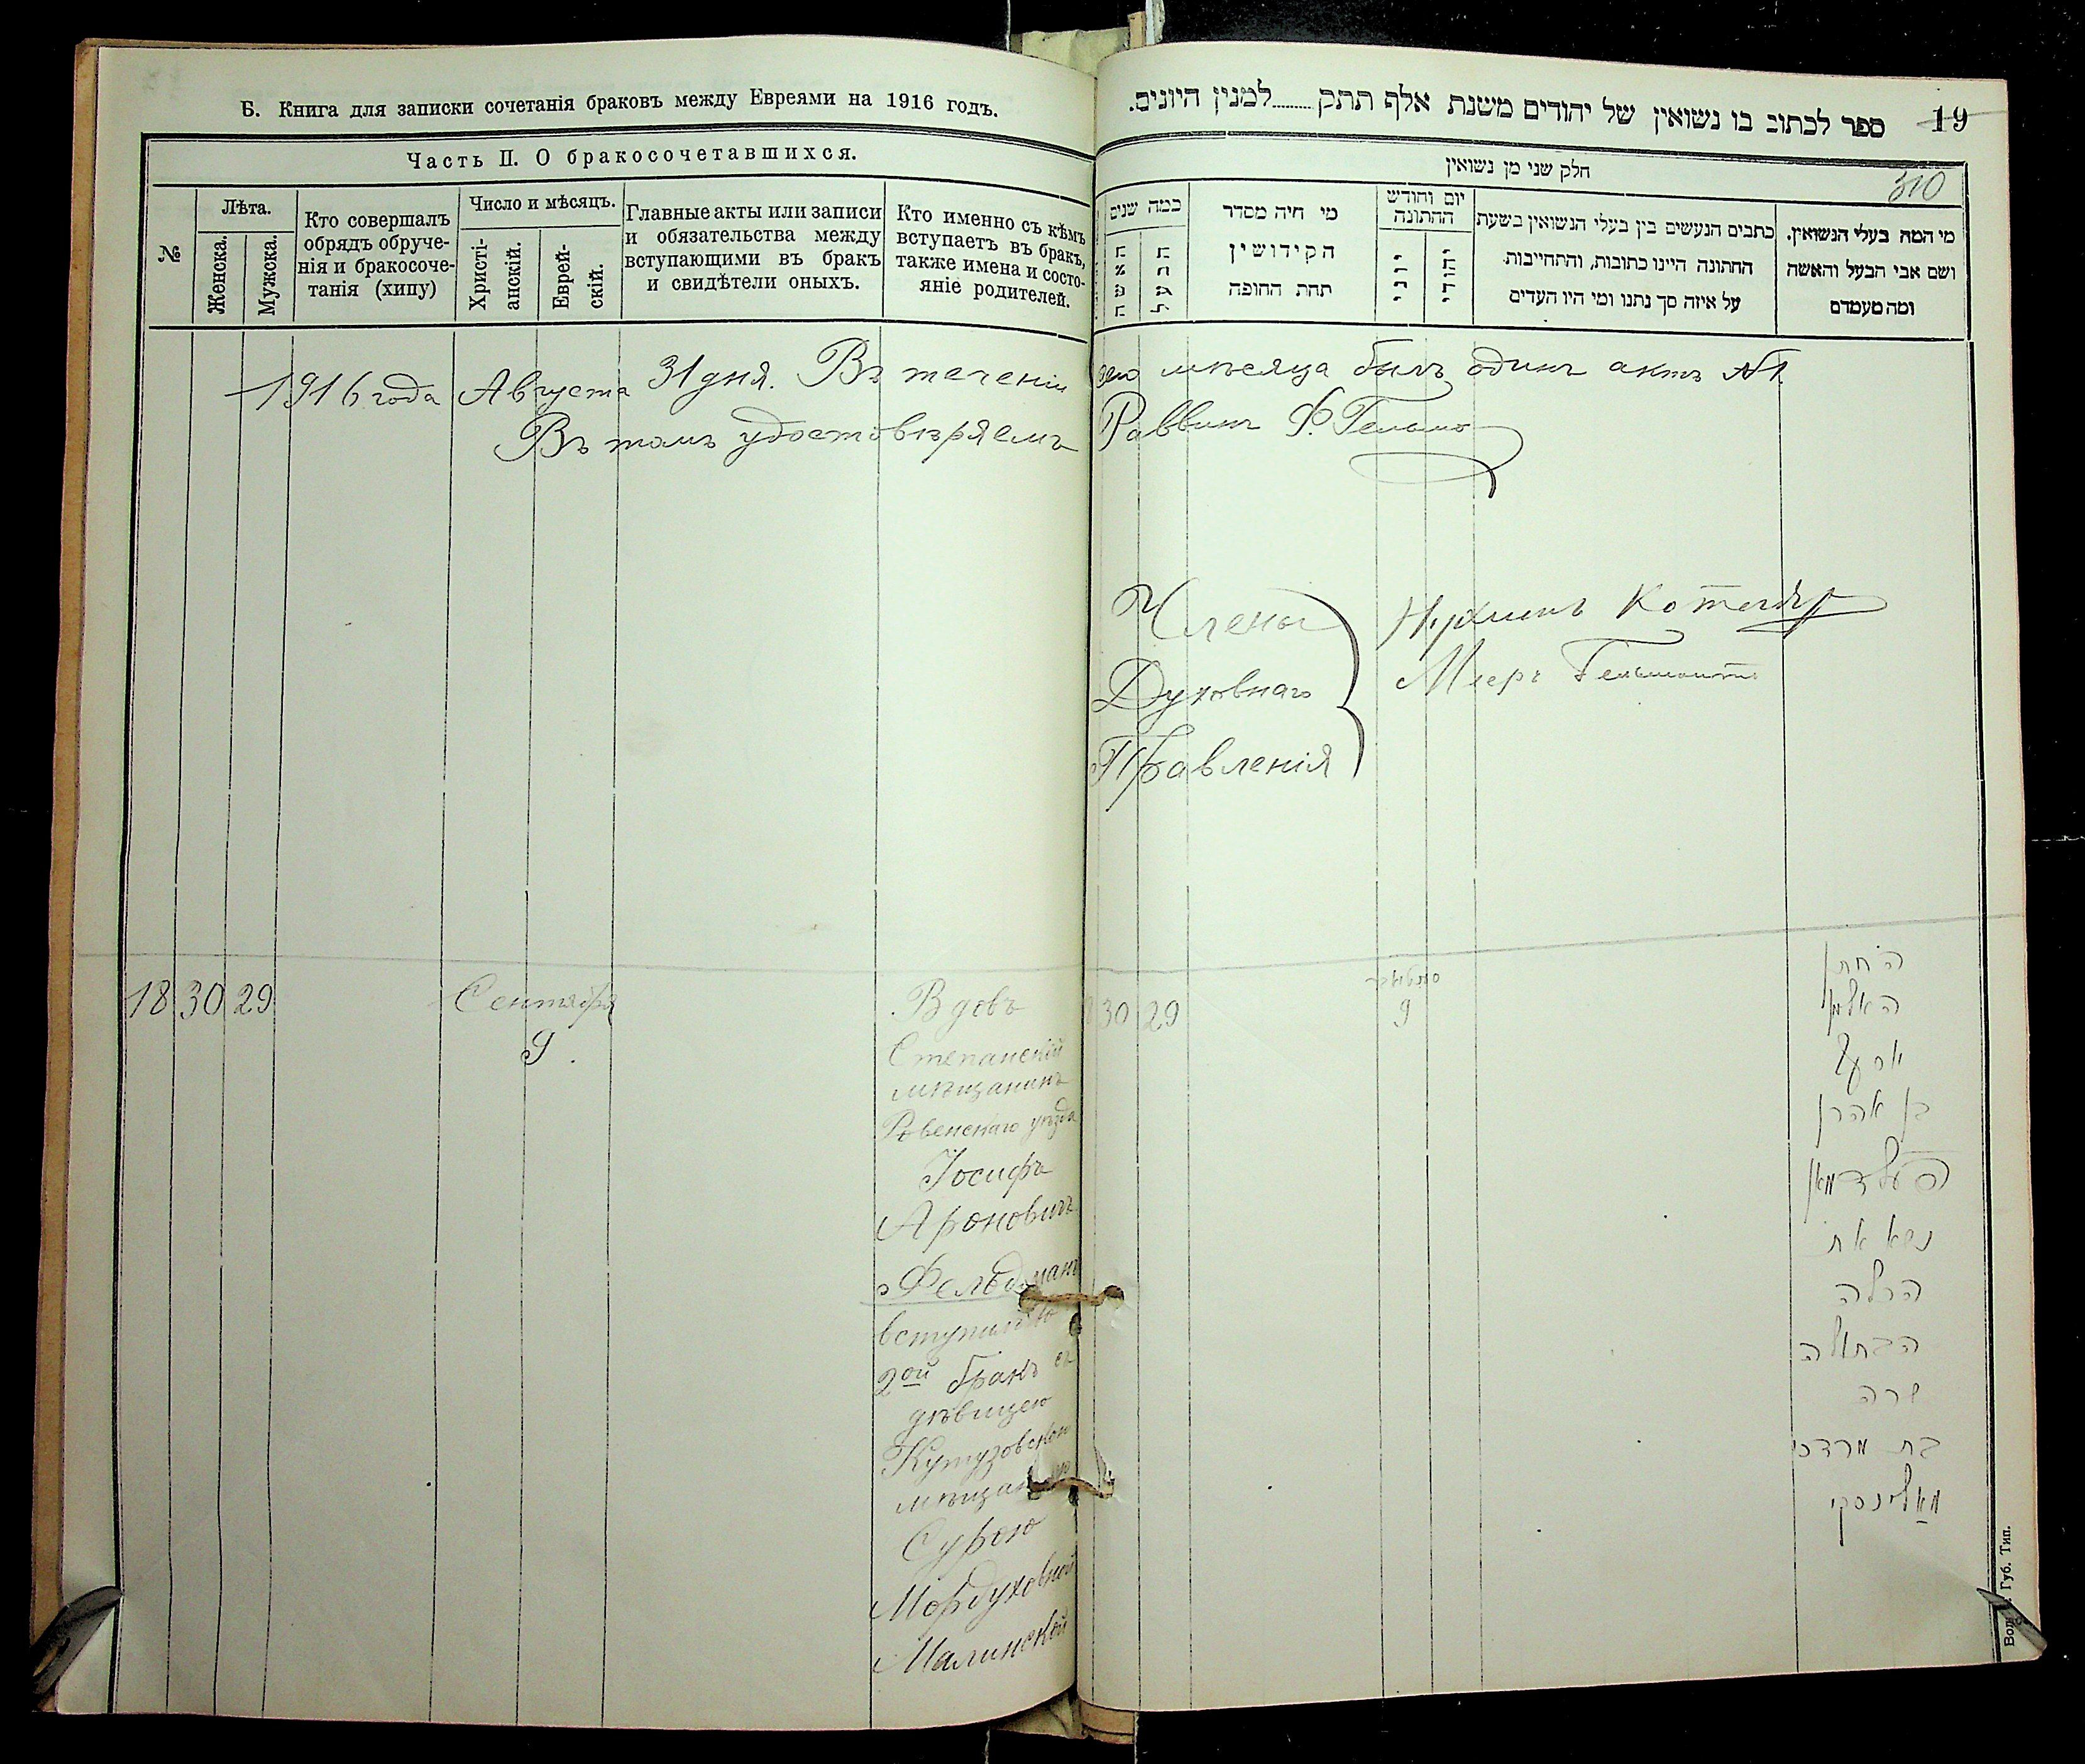 Б. Книга для записки сочетанія браковъ между Евреями на 1916 годъ.
Часть II. О бракосочетавшихся.
№
Лѣта.
Женска.
Мужска.
Кто совершалъ
обрядъ обруче-
нія и бракосоче-
танія (хипу)
Число и мѣсяцъ.
Христі-
анскій.
Еврей-
скій.
Главные акты или записи
и обязательства между
вступающими въ бракъ
и свидѣтели оныхъ.
Кто именно съ кѣмъ
вступаетъ въ бракъ,
также имена и состо-
яніе родителей.
ספר לכתוב בו נשואין של יהודים משנת אלף תתק.........למנין היונים.
19
חלק שני מן נשואין
310
כמה שנים
האשה
הבעל
מי היה מסדר
הקידושין
תחת החופה
יום וחודש
החתונה
יוני
יהודי
כתבים הנעשים בין בעלי הנשואין בשעת
החתונה היינו כתובות, והתחייבות
על איזה סך נתנו ומי היו העדים
מי המה בעלי הנשואין.
ושם אבי הבעל והאשה
ומה מעמדם
1916 года Августа 31 дня. Въ теченіи сего мѣсяца былъ одинъ актъ №1.
Въ томъ удостовѣряемъ Раввинъ
Члены
Духовнаго
Правленія
Мееръ
18 30 29
Сентября
9
Вдовъ
Степанскій
мѣщанинъ
Ровенскаго уѣзда
Іосифъ
Ароновичъ
Фельдманъ
вступилъ во
2ой бракъ съ
дѣвицею
Кутузовской
Сурою
Мордуховной
Малинской
30 29
9
החתן
האלמן
יוסף
בן אהרן
פעלדמאן
נשא את
הכלה
הבתולה
שרה
בת מרדכי
מאלינסקי
Губ. Тип.